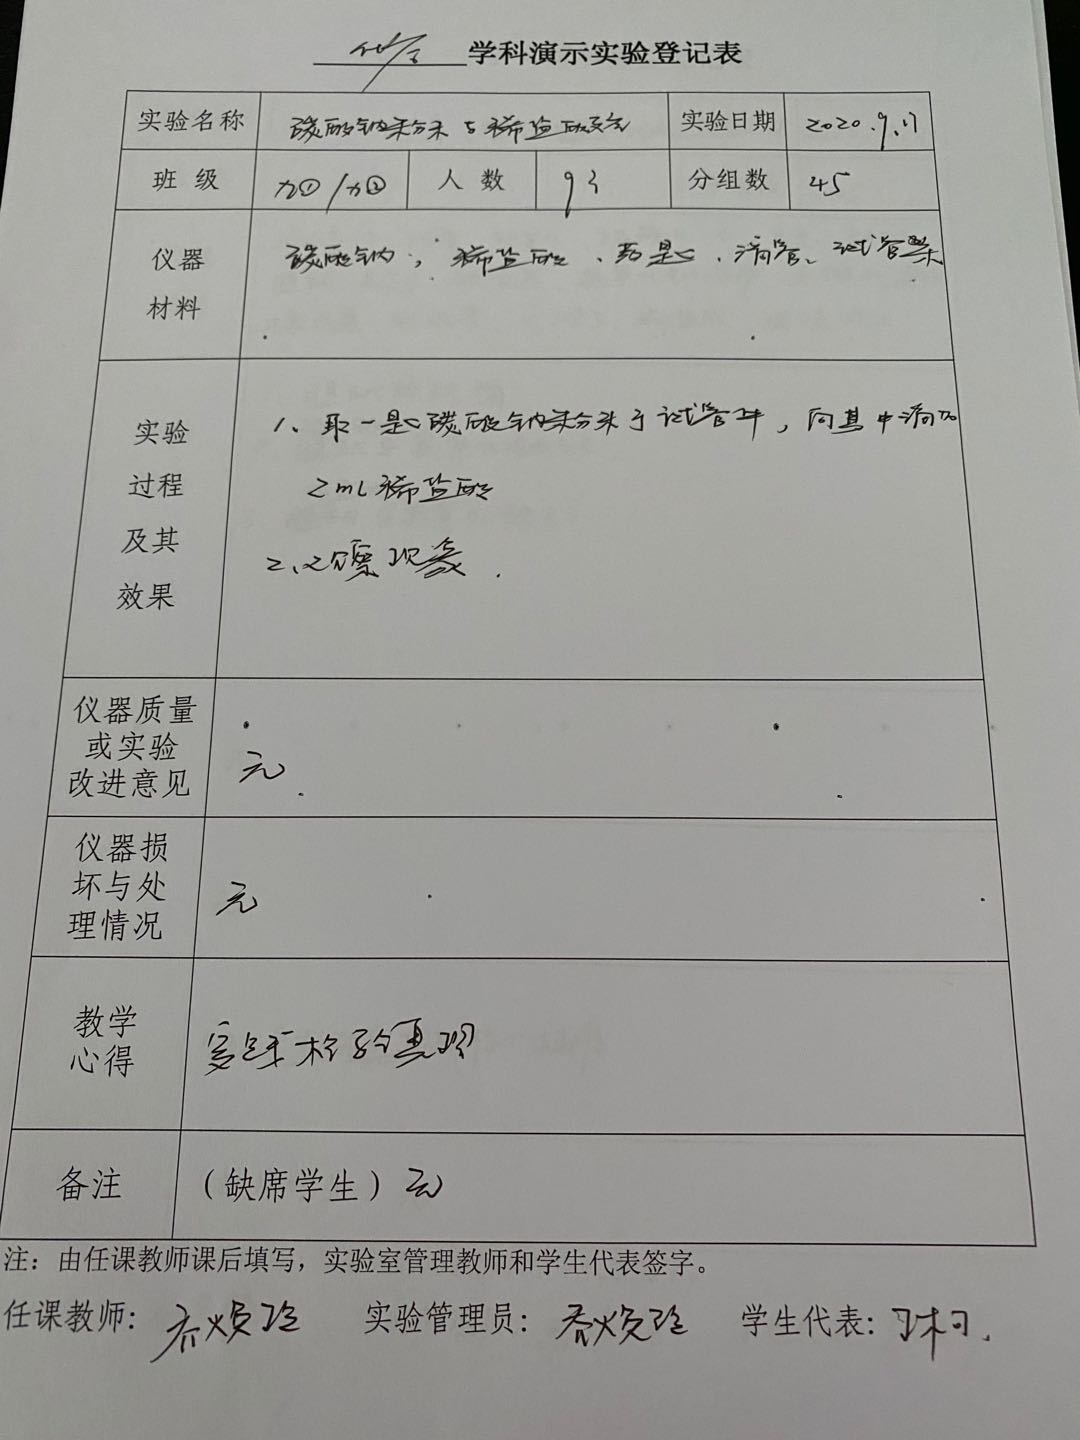 化学 学科演示实验登记表
实验名称 碳酸钠粉末与稀盐酸反应 实验日期 2020.9.17
班级 九①/九② 人数 93 分组数 45
仪器材料 碳酸钠，稀盐酸、药匙、滴管、试管架
实验过程及其效果 1、取一匙碳酸钠粉末于试管中，向其中滴加
2mL稀盐酸
2、观察现象.
仪器质量或实验改进意见 无
仪器损坏与处理情况 无
教学心得 实践检验真理
备注 （缺席学生）无
注：由任课教师课后填写，实验室管理教师和学生代表签字。
任课教师: 乔焕玲 实验管理员: 乔焕玲 学生代表: